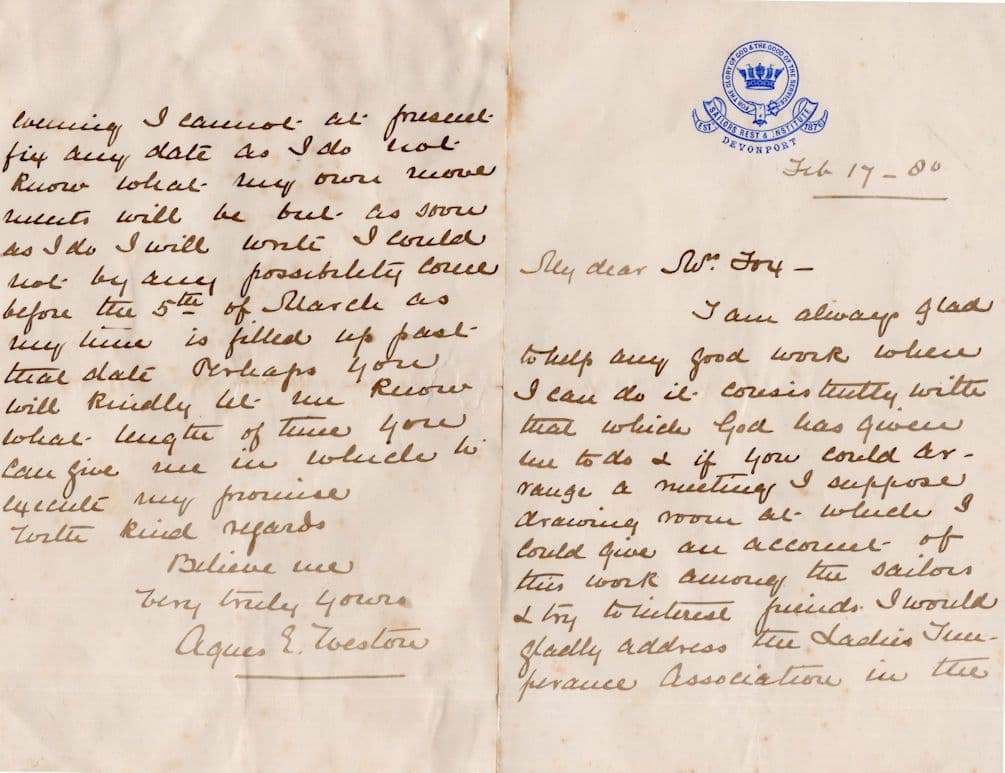 FOR THE GLORY OF GOD & THE GOOD OF THE SERVICE
SAILORS REST & INSTITUTE
EST 1876
DEVONPORT
Feb 17 - 80
My dear Mrs Fox -
I am always glad
to help any good work where
I can do it consistently with
that which God has given
me to do & if you could ar-
range a meeting I suppose
drawing room at which I
could give an account of
this work among the sailors
& try to interest friends. I would
gladly address the Ladies Tem-
perance Association in the
evening I cannot at present
fix any date as I do not
know what my own move
ments will be but as soon
as I do I will write I could
not by any possibility come
before the 5th of March as
my time is filled up past
that date Perhaps you
will kindly let me know
what length of time you
can give me in which to
execute my promise
With kind regards
Believe me
Very truly yours
Agnes E. Weston